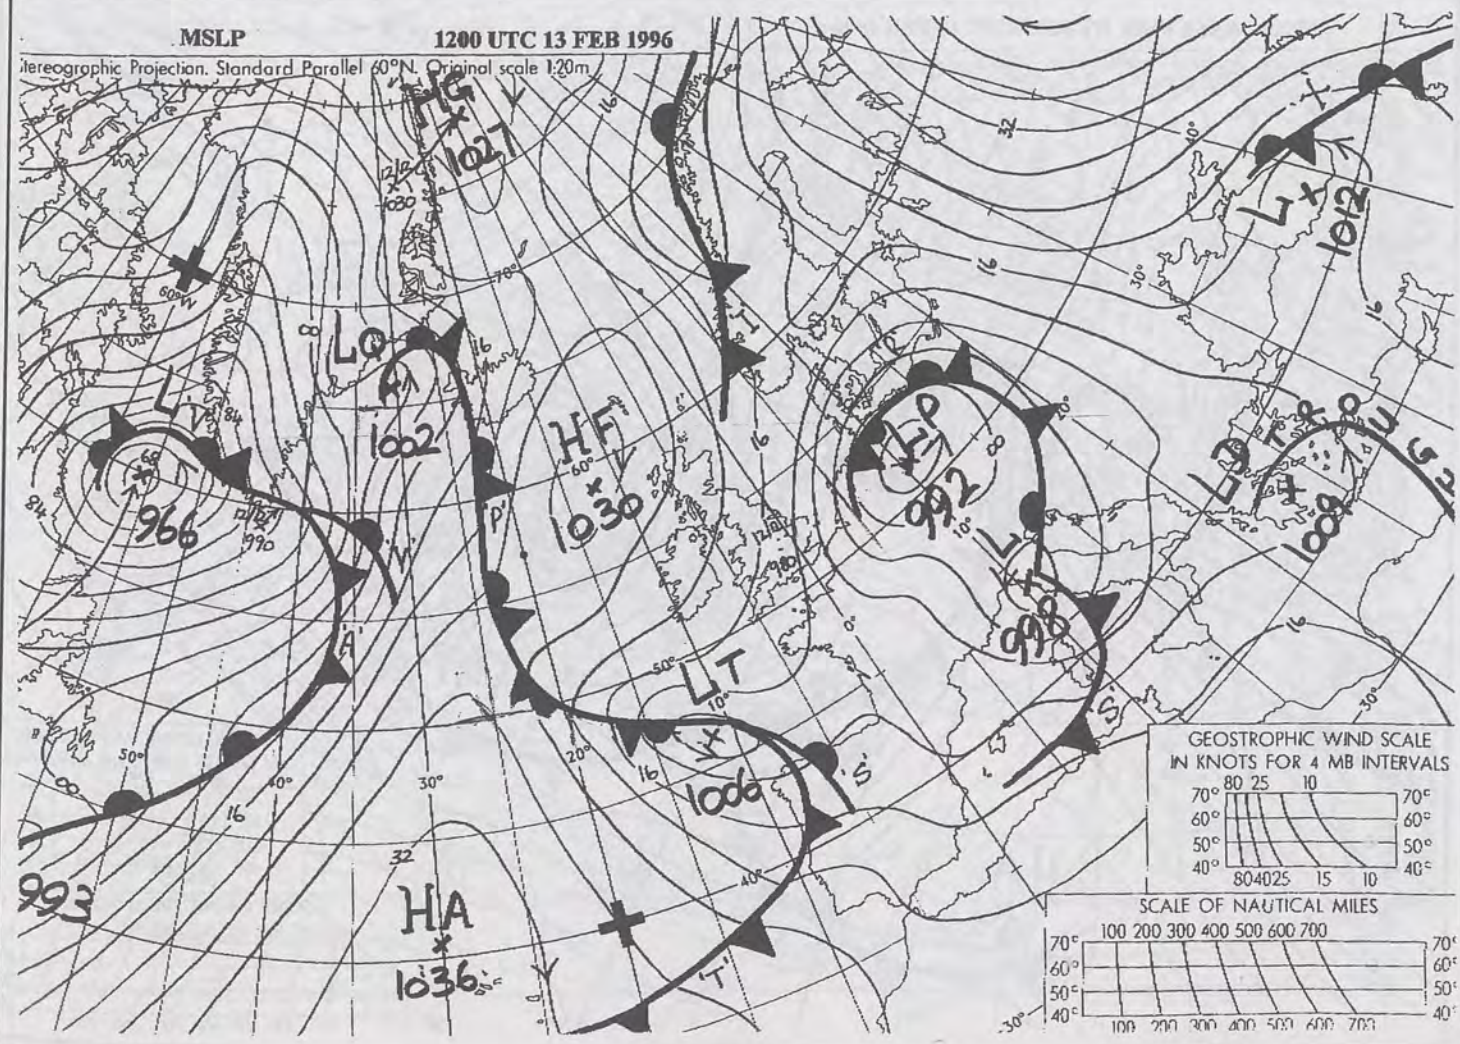 MSLP 1200 UTC 13 FEB 1996
tereographic Projection. Standard Parallel 60°N. Original scale 1:20m
HG
1027
12/12
1030
16
32
40°
L
1012
16
16
30°
60°W
70°
8
LQ
1002
16
L'V'
84
966
84
990
'V'
'P'
HF
60°
1030
16
LP
992
8
20°
10°
L
998
LD TROUGH
1009
16
30°
0°
'A'
50°
8
40°
16
30°
20°
50°
LT
10°
16
1006
'S'
'S'
32
HA
1036
993
40°
'T'
30°
GEOSTROPHIC WIND SCALE
IN KNOTS FOR 4 MB INTERVALS
80 25 10
70° 70°
60° 60°
50° 50°
40° 40°
80 40 25 15 10
SCALE OF NAUTICAL MILES
100 200 300 400 500 600 700
70° 70°
60° 60°
50° 50°
40° 40°
100 200 300 400 500 600 700